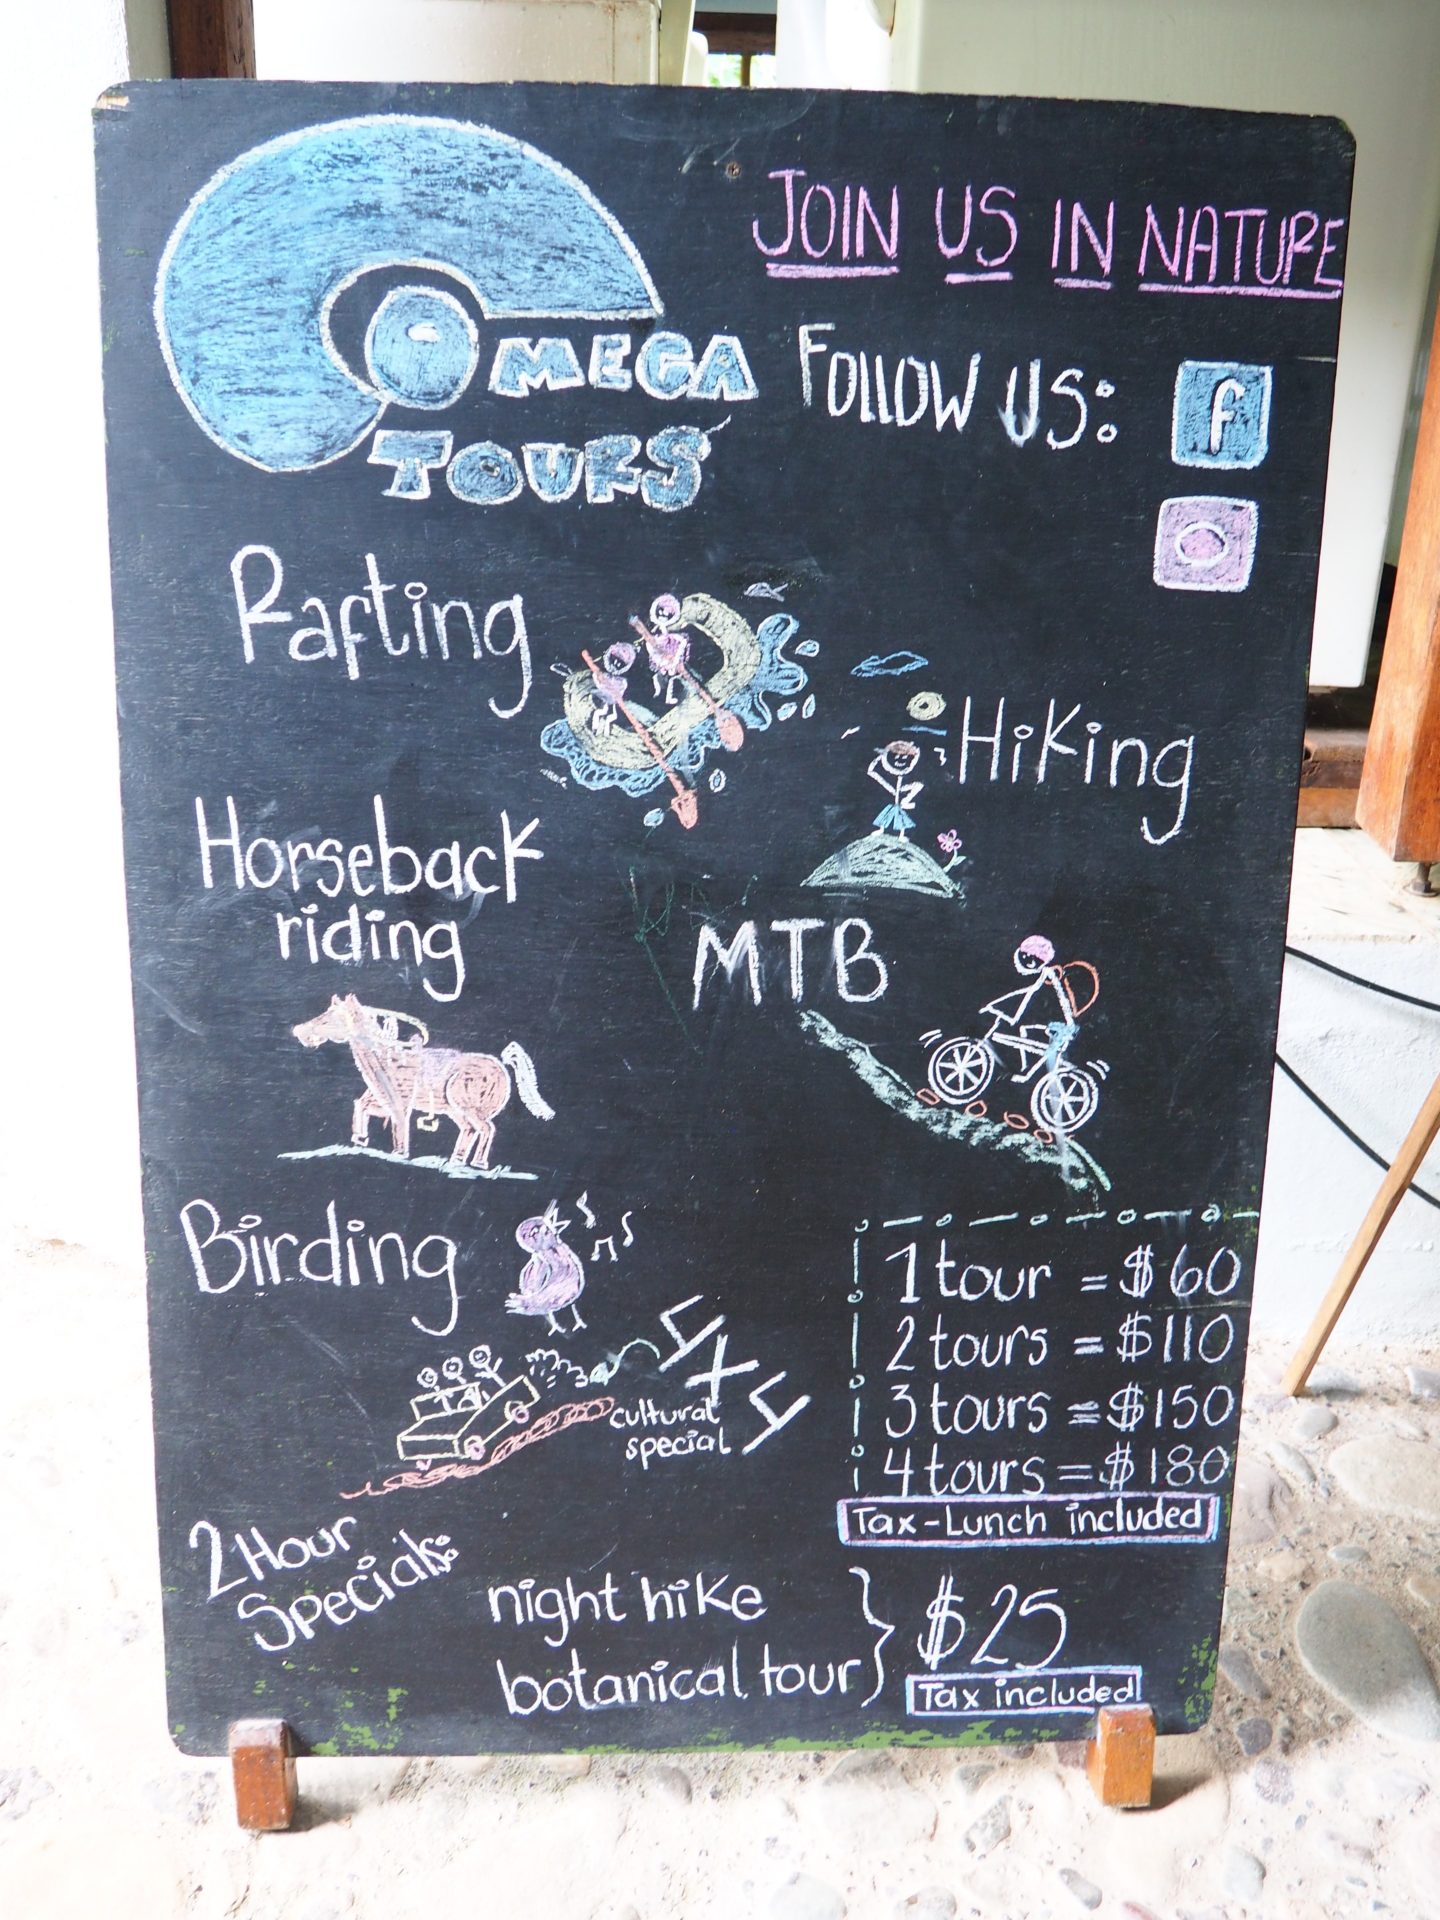 OMEGA
TOURS
JOIN US IN NATURE
FOLLOW US:
f
Rafting
Hiking
Horseback
riding
MTB
Birding
4x4
cultural
special
1 tour = $60
2 tours = $110
3 tours = $150
4 tours = $180
Tax-Lunch included
2 Hour
Specials:
night hike
botanical tour } $25
Tax included